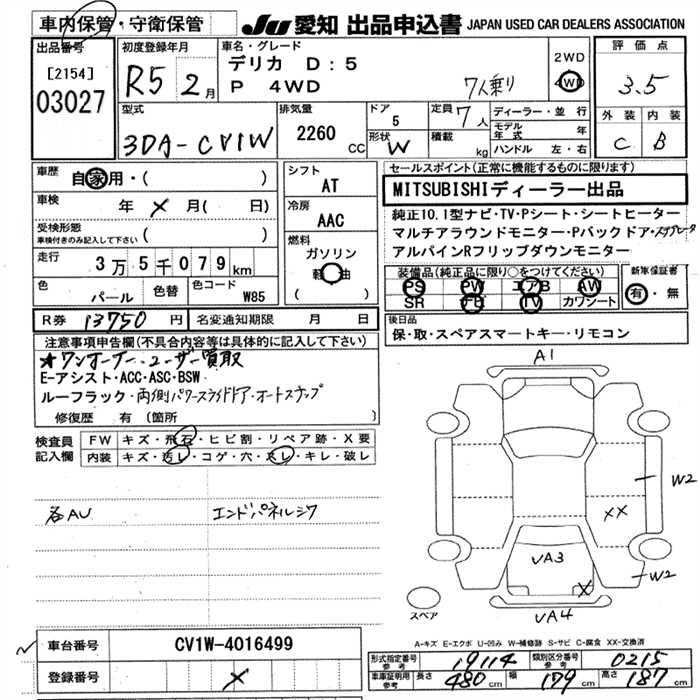 車内保管・守衛保管
JU 愛知 出品申込書 JAPAN USED CAR DEALERS ASSOCIATION
出品番号
[2154]
03027
初度登録年月
R5 2月
車名・グレード
デリカ D:5
P 4WD
7人乗り
2WD
4WD
評価点
3.5
外装 内装
C B
型式
3DA-CV1W
排気量
2260 CC
ドア
5
形状
W
定員 7人
積載 kg
ディーラー・並行
モデル年式 年
ハンドル 左・右
車歴
自家用・( )
車検
年 × 月( 日)
受検形態
車検付きのみ記入して下さい ( )
走行
3万5千079km
色
パール
色替
色コード
W85
シフト
AT
冷房
AAC
燃料
ガソリン
軽油
( )
セールスポイント(正常に機能するものに限ります)
MITSUBISHIディーラー出品
純正10.1型ナビ・TV・Pシート・シートヒーター
マルチアラウンドモニター・Pバックドア・
アルパインRフリップダウンモニター
装備品(純正品に限り○をつけてください)
PS PW エアB AW
SR ナビ TV カワシート
新車保証書
有・無
R券 13750円
名変通知期限 月 日
後日品
保・取・スペアスマートキー・リモコン
注意事項申告欄(不具合内容等は具体的に記入して下さい)
★ワンオーナー・ユーザー買取
E-アシスト・ACC・ASC・BSW
ルーフラック・両側パワースライドドア・オートステップ
修復歴 有 (箇所
検査員記入欄
FW キズ・飛石・ヒビ割・リペア跡・X要
内装 キズ・汚レ・コゲ・穴・スレ・キレ・破レ
各AU
エンドパネルシワ
A1
W2
××
W2
VA3
×
VA4
スペア
A-キズ E-エクボ U-凹み W-補修跡 S-サビ C-腐食 XX-交換済
車台番号 CV1W-4016499
登録番号 ×
形式指定番号 19114
類別区分番号 0215
車車証明用参考 長さ 480cm 幅 179cm 高さ 187cm